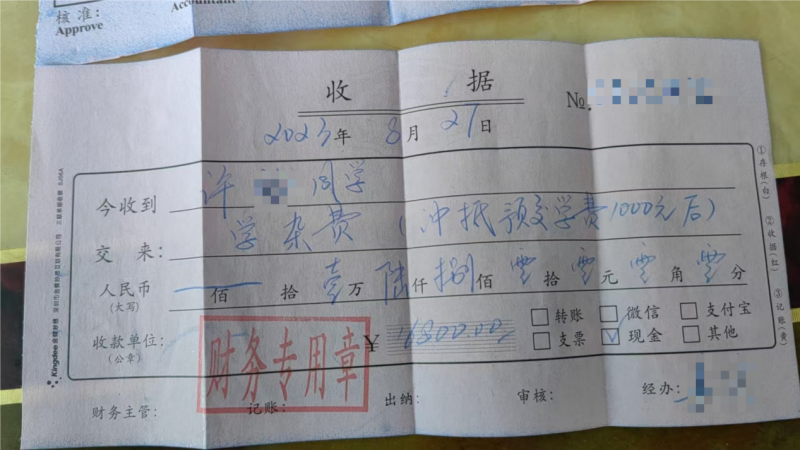 核准:
Approve
Accountant
收 据
№.
2023年 8月 27日
今收到 许 同学
交 来: 学杂费 (冲抵预交学费1000元后)
人民币 佰 拾 壹万 陆仟 捌佰 零拾 零元 零角 零分
(大写)
收款单位: ¥ 16800.00 □转账 □微信 □支付宝
(公章) □支票 ☑现金 □其他
财务专用章
财务主管: 记账: 出纳: 审核: 经办:
①存根(白) ②收据(红) ③记账(黄)
Kingdee